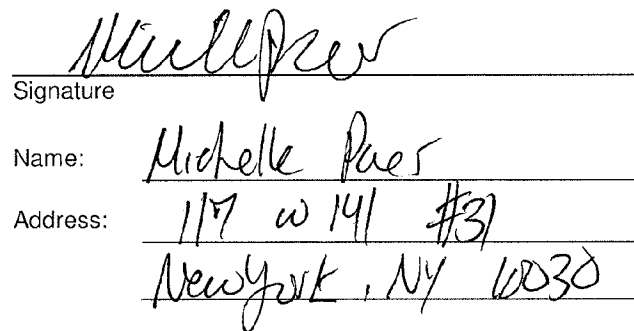 Signature
Name: Michelle Paer
Address: 117 W 141 #31
New York, NY 10030